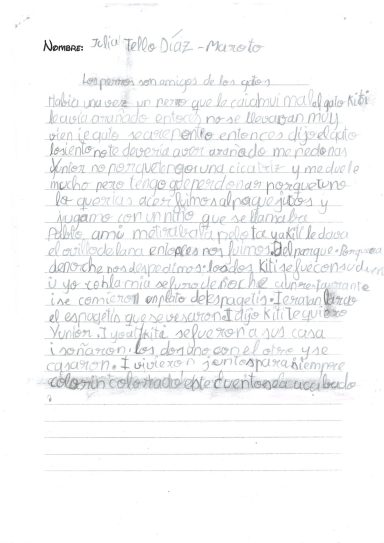 NOMBRE: Julia Tello Díaz - Maroto
Los perros son amigos de los gatos
Habia una vez un perro que le caia mui mal al gato Kiti
le avia arañado entonces no se llevavan muy
vien je gato se arrepontio entonces dijo el gato
losiento no te deveria aver arañado me pedonas
Yunior no porque tengo una cicatriz y me duele
mucho pero tengo que perdonar porque tu no
lo querias acer fuimos al parque jutos y
jugamo con un niño que se llamaba
Pablo, a mi me tiraba la pelota ya Kiti le dava
el orillo de lana entonces nos fuimos. Del parque.
de noche nos despedimos. los dos Kiti se fue con su
i yo con la mia se iso de noche
i se comieron un plato de Espagetis. I era tan largo
el espagetis que se vesaron. I dijo Kiti Te quiero
Yunior. I yo a ti Kiti se fueron a sus casa
i soñaron. los dos uno con el otro y se
casaron. I vivieron juntos para siempre
colorin colorrado este cuento sea acabado